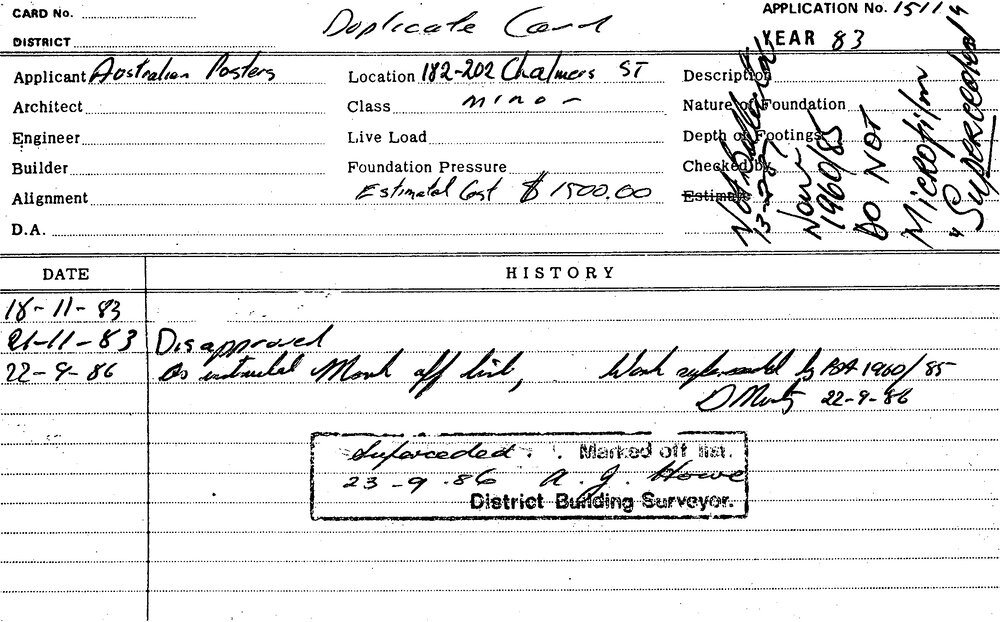 CARD No.
Duplicate Card
APPLICATION No. 1511
DISTRICT
YEAR 83
Applicant Australian Posters
Location 182-202 Chalmers ST
Description
Architect
Class minor
Nature of Foundation
Engineer
Live Load
Depth of Footings
Builder
Foundation Pressure
Checked by
Alignment
Estimated Cost $1500.00
Estimate
D.A.
13-2-87
Now
1960/85
DO NOT
Microfilm
"Superceeded"
DATE
HISTORY
18-11-83
21-11-83 Disapproved
22-9-86 As instructed Mark off list, Work superceeded by BA 1960/85
22-9-86
Superceded. Marked off list.
23-9-86 A. J. Howe
District Building Surveyor.